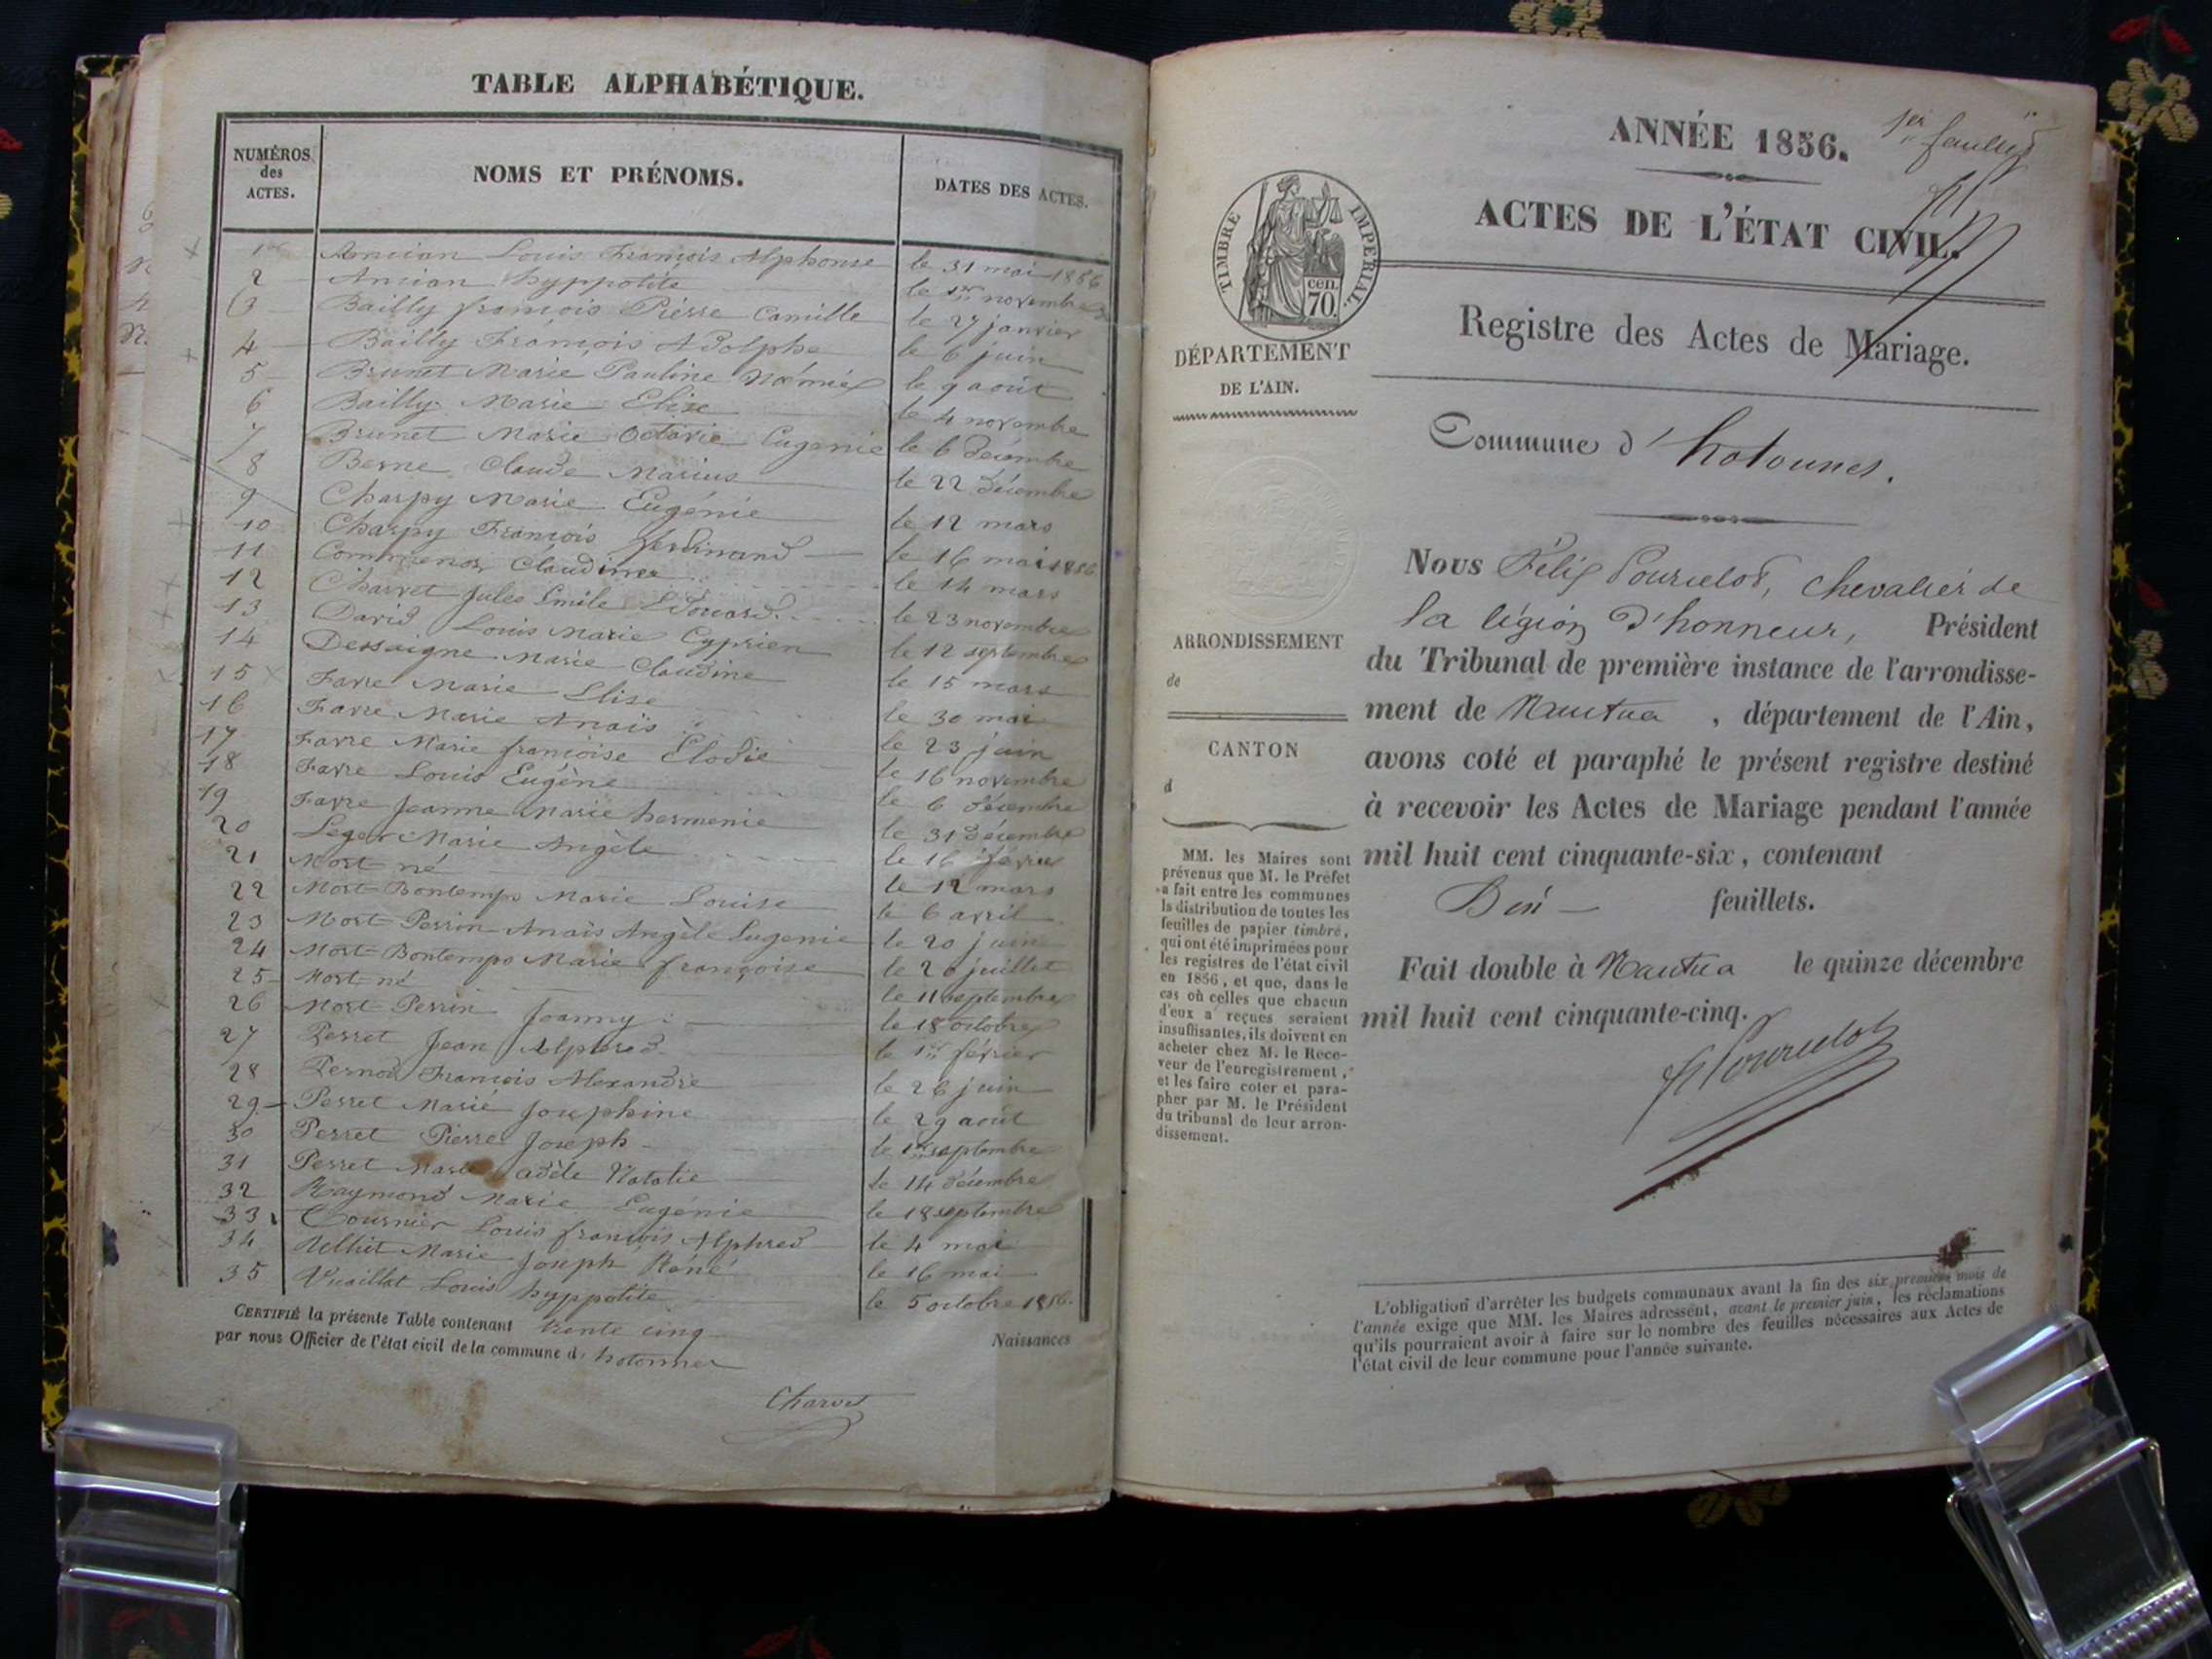 TABLE ALPHABÉTIQUE.
NUMÉROS des ACTES.
NOMS ET PRÉNOMS.
DATES DES ACTES.
1er Ancian Louis François Alphonse le 31 mai 1856
2 Ancian hyppolite le 1er novembre
3 Bailly françois Pierre Camille le 27 janvier
4 Bailly François Adolphe le 6 juin
5 Brunet Marie Pauline Noémie le 9 août
6 Bailly Marie Elise le 4 novembre
7 Brunet Marie Octavie Eugenie le 6 décembre
8 Berne Claude Marius le 22 décembre
9 Charpy Marie Eugénie le 12 mars
10 Charpy François ferdinand le 16 mai 1856
11 Claudine le 14 mars
12 Charvet Jules Emile Edouard le 23 novembre
13 David Louis Marie Cyprien le 12 septembre
14 Dessaigne Marie Claudine le 15 mars
15 Favre Marie Elise le 30 mai
16 Favre Marie Anaïs le 23 juin
17 Favre Marie françoise Elodie le 16 novembre
18 Favre Louis Eugène le 6 décembre
19 Favre Jeanne Marie hermenie le 31 décembre
20 Leger Marie Angèle le 16 février
21 Mort né le 12 mars
22 Mort-Bontemps Marie Louise le 6 avril
23 Mort-Perrin Anaïs Angèle Eugenie le 20 juin
24 Mort-Bontemps Marie françoise le 20 juillet
25 Mort né le 11 septembre
26 Mort-Perrin Joanny le 18 octobre
27 Perret Jean Alphred le 1er février
28 Pernod François Alexandre le 26 juin
29 Perret Marie Josephine le 29 août
30 Perret Pierre Joseph le 1er septembre
31 Perret Marie adèle Natalie le 14 décembre
32 Raymond Marie Eugénie le 18 septembre
33 Tournier Louis françois Alphred le 4 mai
34 Marie Joseph Réné le 16 mai
35 Vuaillat Louis hyppolite le 5 octobre 1856.
CERTIFIÉ la présente Table contenant trente cinq Naissances
par nous Officier de l'état civil de la commune d'hotonnes
Charvet
1er feuillet
ANNÉE 1856.
ACTES DE L'ÉTAT CIVIL.
TIMBRE IMPÉRIAL.
cen. 70.
Registre des Actes de Mariage.
DÉPARTEMENT
DE L'AIN.
Commune d'hotonnes.
ARRONDISSEMENT
de
CANTON
d
Nous Félix Pourcelot, chevalier de
la légion d'honneur, Président
du Tribunal de première instance de l'arrondisse-
ment de Nantua, département de l'Ain,
avons coté et paraphé le présent registre destiné
à recevoir les Actes de Mariage pendant l'année
mil huit cent cinquante-six, contenant
feuillets.
Fait double à Nantua le quinze décembre
mil huit cent cinquante-cinq.
Pourcelot
MM. les Maires sont
prévenus que M. le Préfet
a fait entre les communes
la distribution de toutes les
feuilles de papier timbré,
qui ont été imprimées pour
les registres de l'état civil
en 1856, et que, dans le
cas où celles que chacun
d'eux a reçues seraient
insuffisantes, ils doivent en
acheter chez M. le Rece-
veur de l'enregistrement,
et les faire coter et para-
pher par M. le Président
du tribunal de leur arron-
dissement.
L'obligation d'arrêter les budgets communaux avant la fin des six premiers mois de
l'année exige que MM. les Maires adressent, avant le premier juin, les réclamations
qu'ils pourraient avoir à faire sur le nombre des feuilles nécessaires aux Actes de
l'état civil de leur commune pour l'année suivante.